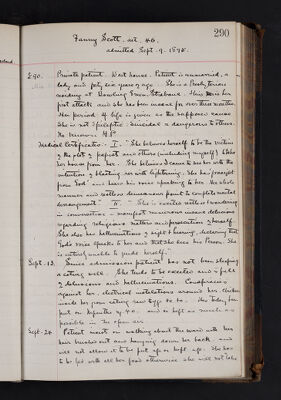 290
Fanny Scott. aet. 46.
admitted Sept. 9. 1898.
E90. Private patient. West house. Patient is unmarried, a
lady and forty six years of age. She is a Presbyterian
residing at Bowling Green Strabane. This is her
first attack and she has been insane for over three months.
Her period of life is given as the supposed cause
She is not Epileptic Suicidal or dangerous to others.
No
Medical Certificates. I. "She believes herself to be the victim
of the plot of papists and others (including myself) to take
her house from her. She believes I came to see her with the
intention of blasting her with lightening. She has
from God and hears his voice speaking to her. Her whole
manner and restless demeanour point to complete mental
derangement." II. "She is excited restless & wandering
in conversation - manifest numerous insane delusions
regarding religious matters and persecution of herself.
She also has hallucinations of sight & hearing, declaring that
God's voice speaks to her and that she sees his Person. She
is entirely unable to guide herself."
Sept. 13. Since admission patient has not been sleeping
or eating well. She tends to be excited and is full
of delusions and hallucinations. Conspiracies
against her, electrical
made her
put on and is kept as much as
possible in the open air.
Sept. 24. Patient insists on walking about the ward with her
hair brushed out and hanging down her back and
will not allow it to be put up or kept up. She has
to be fed with all her food otherwise she will not take